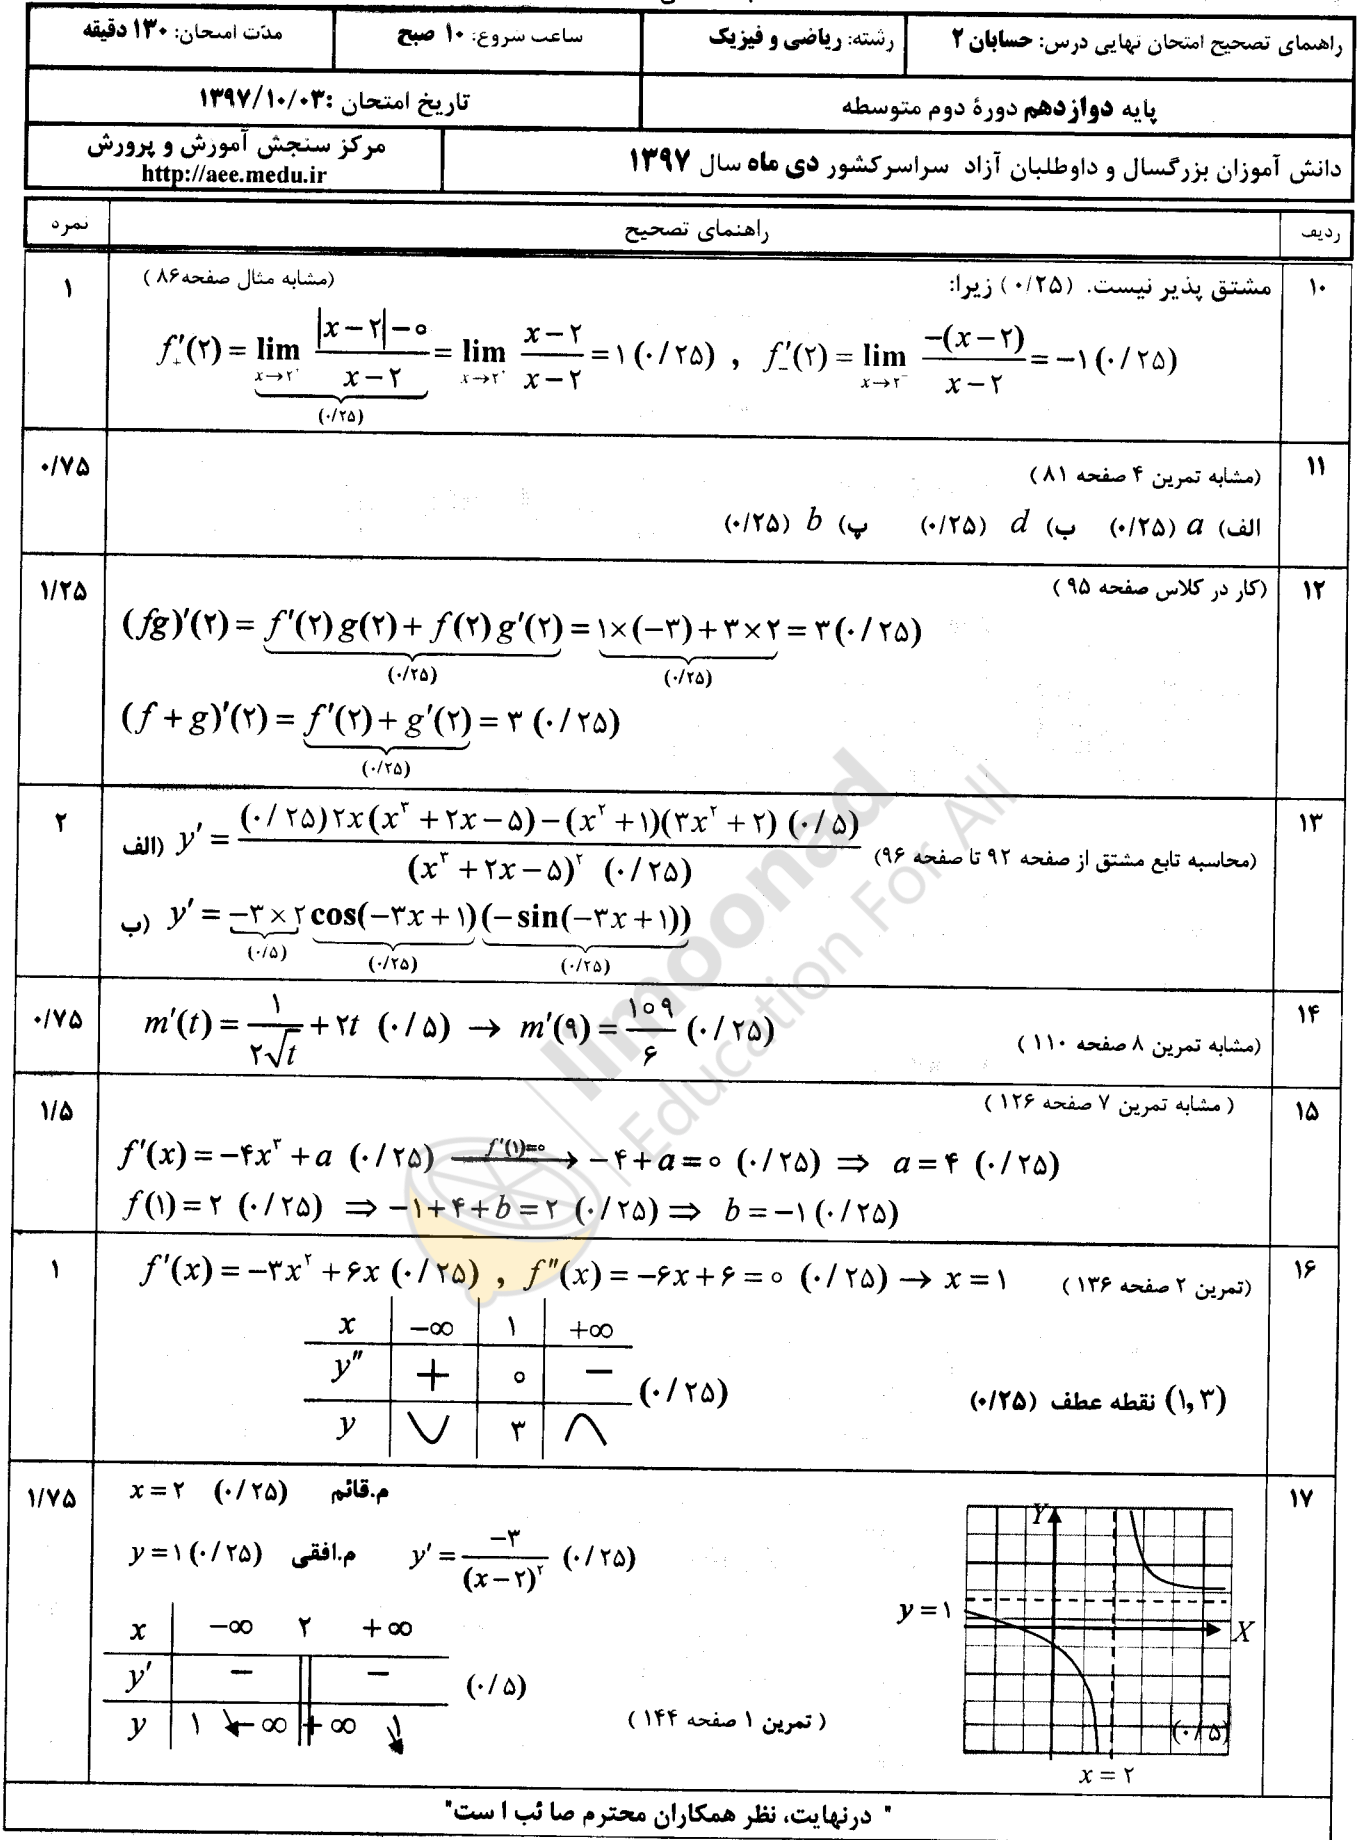 راهنمای تصحیح امتحان نهایی درس: حسابان ۲ رشته: ریاضی و فیزیک ساعت شروع: ۱۰ صبح مدّت امتحان: ۱۳۰ دقیقه
پایه دوازدهم دورۀ دوم متوسطه تاریخ امتحان :۱۳۹۷/۱۰/۰۳
دانش آموزان بزرگسال و داوطلبان آزاد سراسرکشور دی ماه سال ۱۳۹۷ مرکز سنجش آموزش و پرورش
http://aee.medu.ir
ردیف راهنمای تصحیح نمره
۱۰ مشتق پذیر نیست. (۰/۲۵) زیرا: (مشابه مثال صفحه۸۶) ۱
f′₊(۲) = lim x→۲⁺ (|x−۲|−۰)/(x−۲) (۰/۲۵) = lim x→۲⁺ (x−۲)/(x−۲) = ۱ (۰/۲۵) , f′₋(۲) = lim x→۲⁻ −(x−۲)/(x−۲) = −۱ (۰/۲۵)
۱۱ (مشابه تمرین ۴ صفحه ۸۱) ۰/۷۵
الف) a (۰/۲۵) ب) d (۰/۲۵) پ) b (۰/۲۵)
۱۲ (کار در کلاس صفحه ۹۵) ۱/۲۵
(fg)′(۲) = f′(۲)g(۲) + f(۲)g′(۲) (۰/۲۵) = ۱×(−۳)+۳×۲ (۰/۲۵) = ۳ (۰/۲۵)
(f+g)′(۲) = f′(۲)+g′(۲) (۰/۲۵) = ۳ (۰/۲۵)
۱۳ (محاسبه تابع مشتق از صفحه ۹۲ تا صفحه ۹۶) ۲
الف) y′ = ((۰/۲۵)۲x(x³+۲x−۵)−(x²+۱)(۳x²+۲) (۰/۵))/((x³+۲x−۵)² (۰/۲۵))
ب) y′ = −۳×۲ (۰/۵) cos(−۳x+۱) (۰/۲۵) (−sin(−۳x+۱)) (۰/۲۵)
۱۴ (مشابه تمرین ۸ صفحه ۱۱۰) ۰/۷۵
m′(t) = ۱/(۲√t) + ۲t (۰/۵) → m′(۹) = ۱۰۹/۶ (۰/۲۵)
۱۵ (مشابه تمرین ۷ صفحه ۱۲۶) ۱/۵
f′(x) = −۴x³+a (۰/۲۵) f′(۱)=۰ → −۴+a=۰ (۰/۲۵) ⇒ a=۴ (۰/۲۵)
f(۱)=۲ (۰/۲۵) ⇒ −۱+۴+b=۲ (۰/۲۵) ⇒ b=−۱ (۰/۲۵)
۱۶ (تمرین ۲ صفحه ۱۳۶) ۱
f′(x) = −۳x²+۶x (۰/۲۵) , f″(x) = −۶x+۶=۰ (۰/۲۵) → x=۱
x −∞ ۱ +∞
y″ + ۰ − (۰/۲۵)
y ۳
(۱,۳) نقطه عطف (۰/۲۵)
۱۷ ۱/۷۵
x=۲ (۰/۲۵) م.قائم
y=۱ (۰/۲۵) م.افقی y′ = −۳/(x−۲)² (۰/۲۵)
x −∞ ۲ +∞
y′ − − (۰/۵)
y ۱ −∞ +∞ ۱
(تمرین ۱ صفحه ۱۴۴)
Y
y=۱
X
(۰/۵)
x=۲
" درنهایت، نظر همکاران محترم صائب است"
limoonad
Education For All